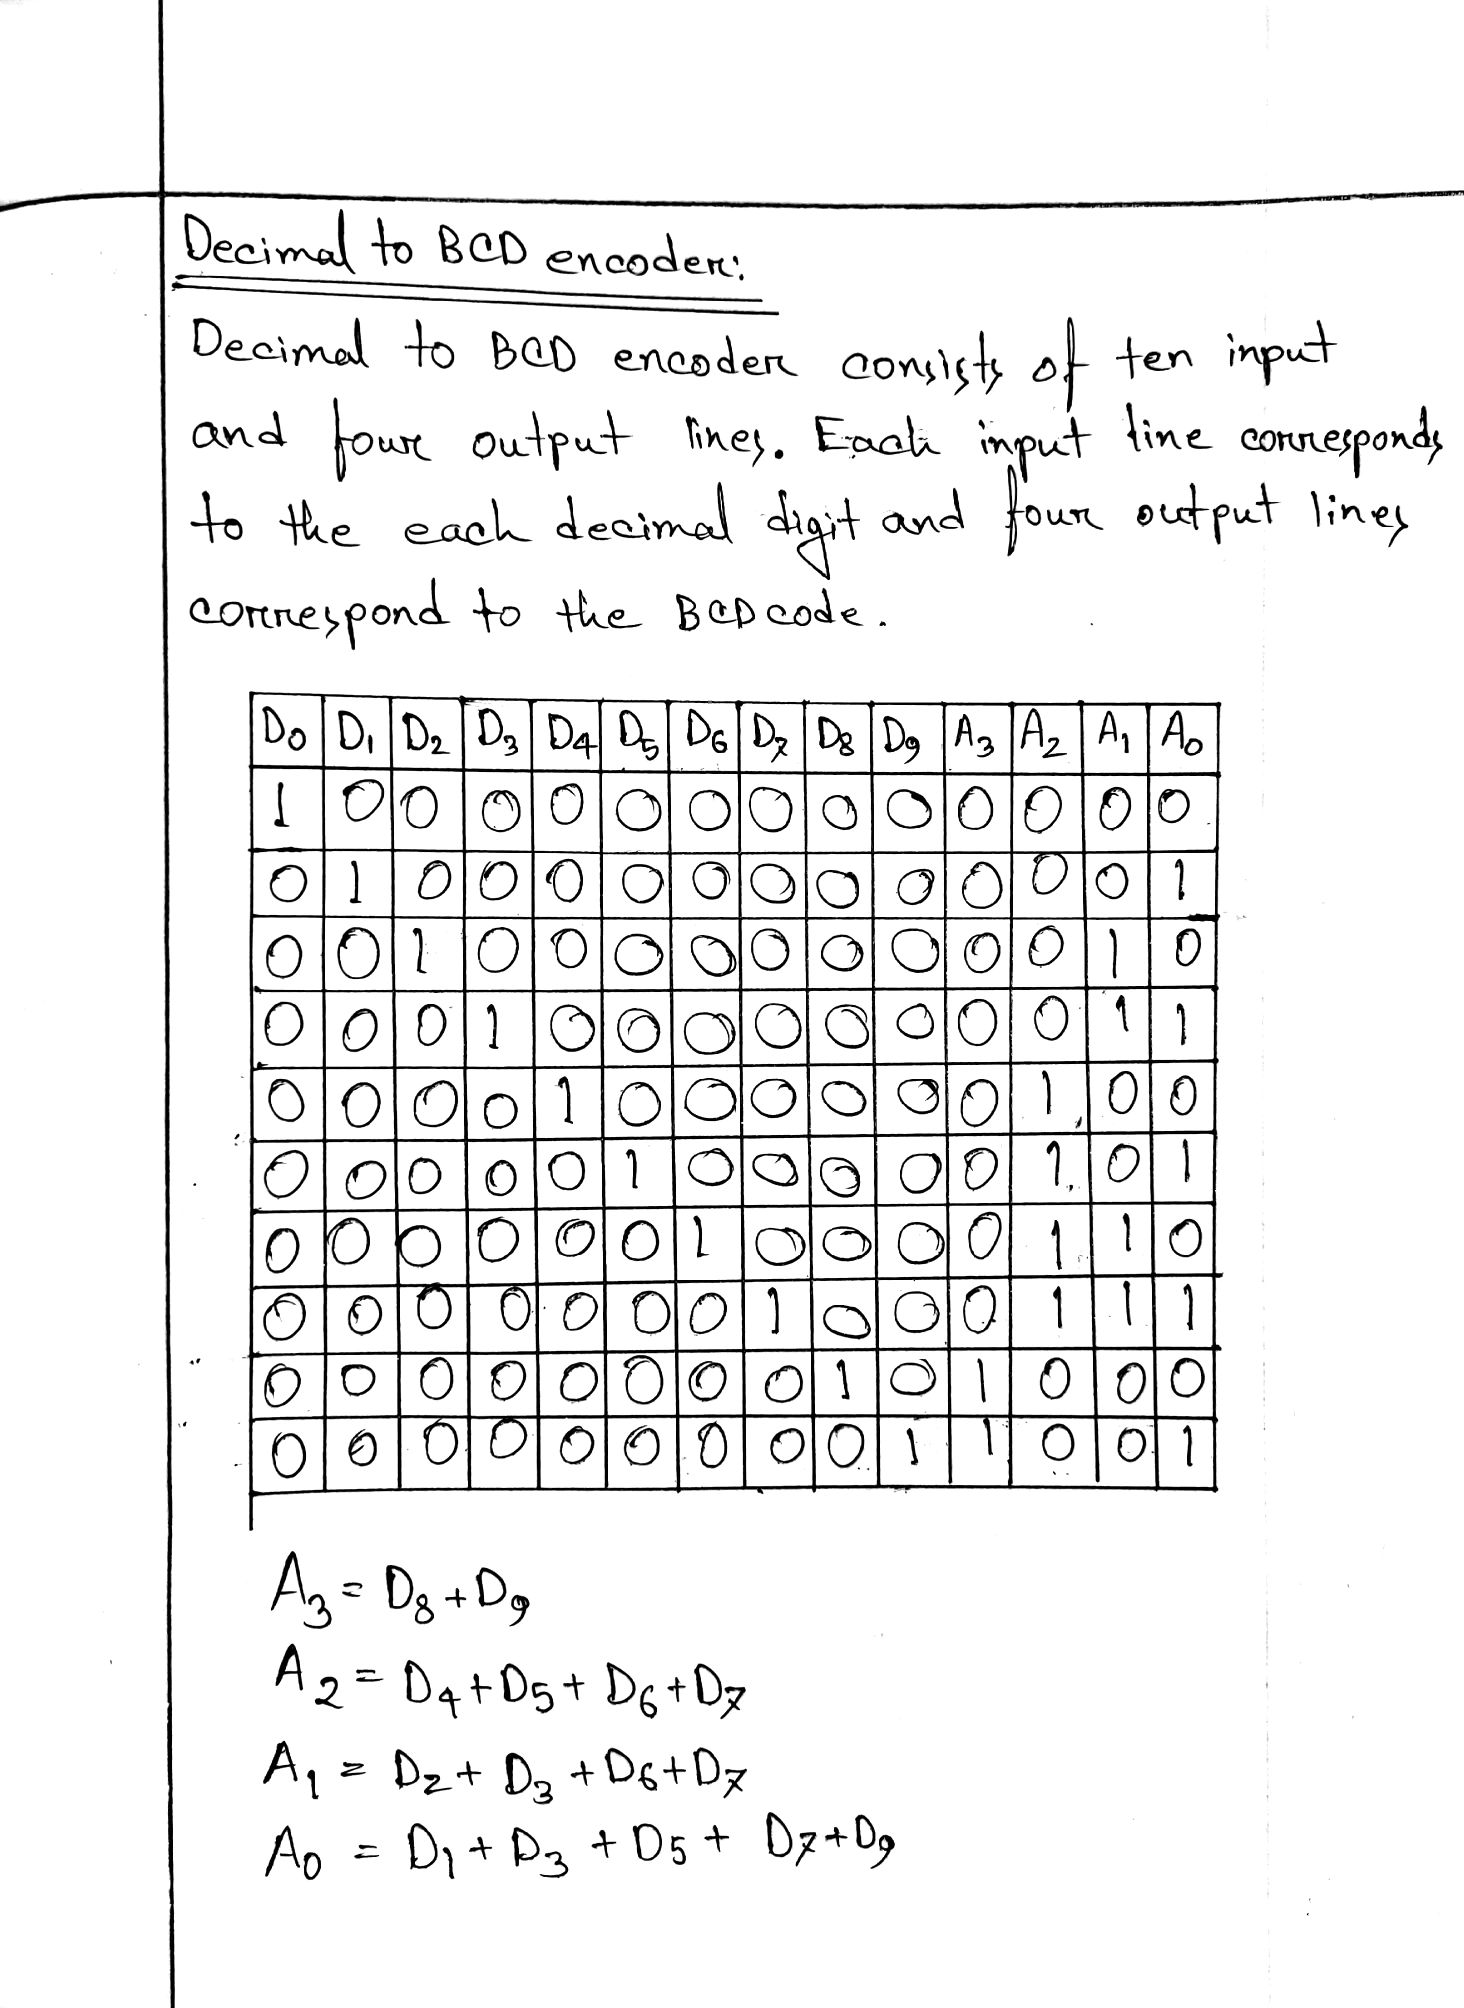 Decimal to BCD encoder:
Decimal to BCD encoder consists of ten input
and four output lines. Each input line corresponds
to the each decimal digit and four output lines
correspond to the BCD code.
D0 D1 D2 D3 D4 D5 D6 D7 D8 D9 A3 A2 A1 A0
1 0 0 0 0 0 0 0 0 0 0 0 0 0
0 1 0 0 0 0 0 0 0 0 0 0 0 1
0 0 1 0 0 0 0 0 0 0 0 0 1 0
0 0 0 1 0 0 0 0 0 0 0 0 1 1
0 0 0 0 1 0 0 0 0 0 0 1 0 0
0 0 0 0 0 1 0 0 0 0 0 1 0 1
0 0 0 0 0 0 1 0 0 0 0 1 1 0
0 0 0 0 0 0 0 1 0 0 0 1 1 1
0 0 0 0 0 0 0 0 1 0 1 0 0 0
0 0 0 0 0 0 0 0 0 1 1 0 0 1
A3 = D8 + D9
A2 = D4 + D5 + D6 + D7
A1 = D2 + D3 + D6 + D7
A0 = D1 + D3 + D5 + D7 + D9